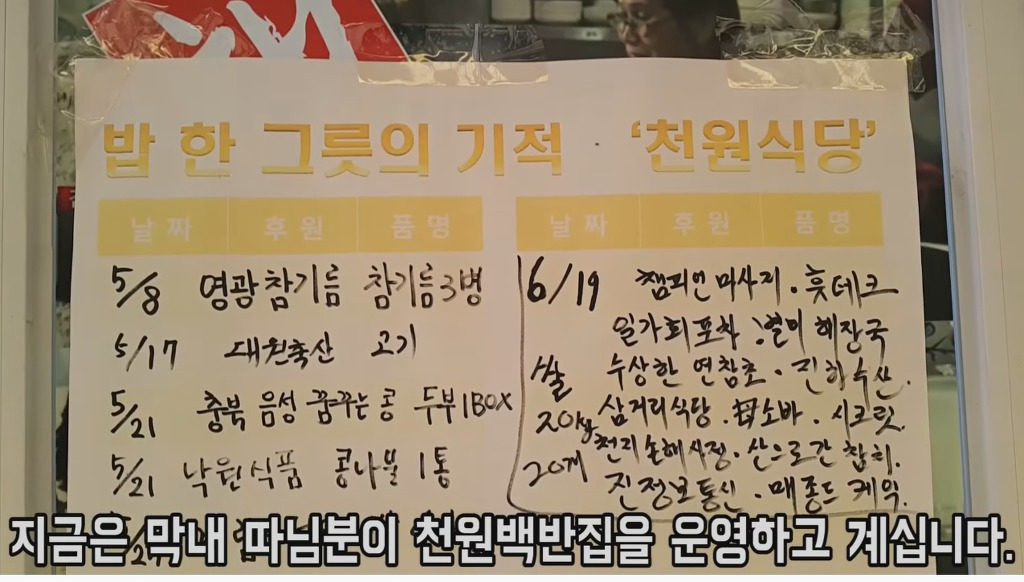 밥 한 그릇의 기적 · '천원식당'
날짜 후원 품명
5/8 영광참기름 참기름3병
5/17 대원축산 고기
5/21 충북 음성 꿈꾸는 콩 두부 1BOX
5/21 낙원식품 콩나물 1통
날짜 후원 품명
6/19 챔피언마사지 · 휴테크
일가회포차 · 별미해장국
쌀 수상한 연참초 · 진하수산.
20kg 삼거리식당 · 母소바 · 시크릿.
천지손해사정 · 산으로간 참치.
20개 진정보통신 · 매종드케익.
지금은 막내 따님분이 천원백반집을 운영하고 계십니다.